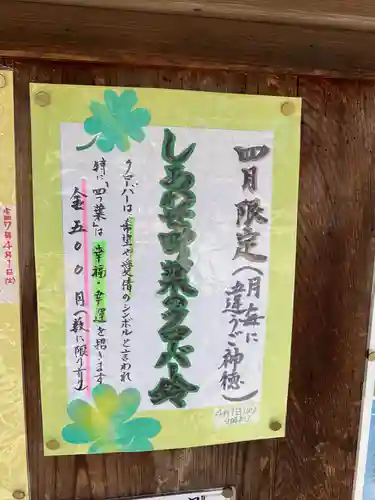 四月限定(月毎に
違うご神徳)
しあわせ四つ葉のクローバー鈴
クローバーは、希望や愛情のシンボルと言われ
特に「四つ葉」は幸福・幸運を招きます
金五〇〇円(数に限り有)
4月1日